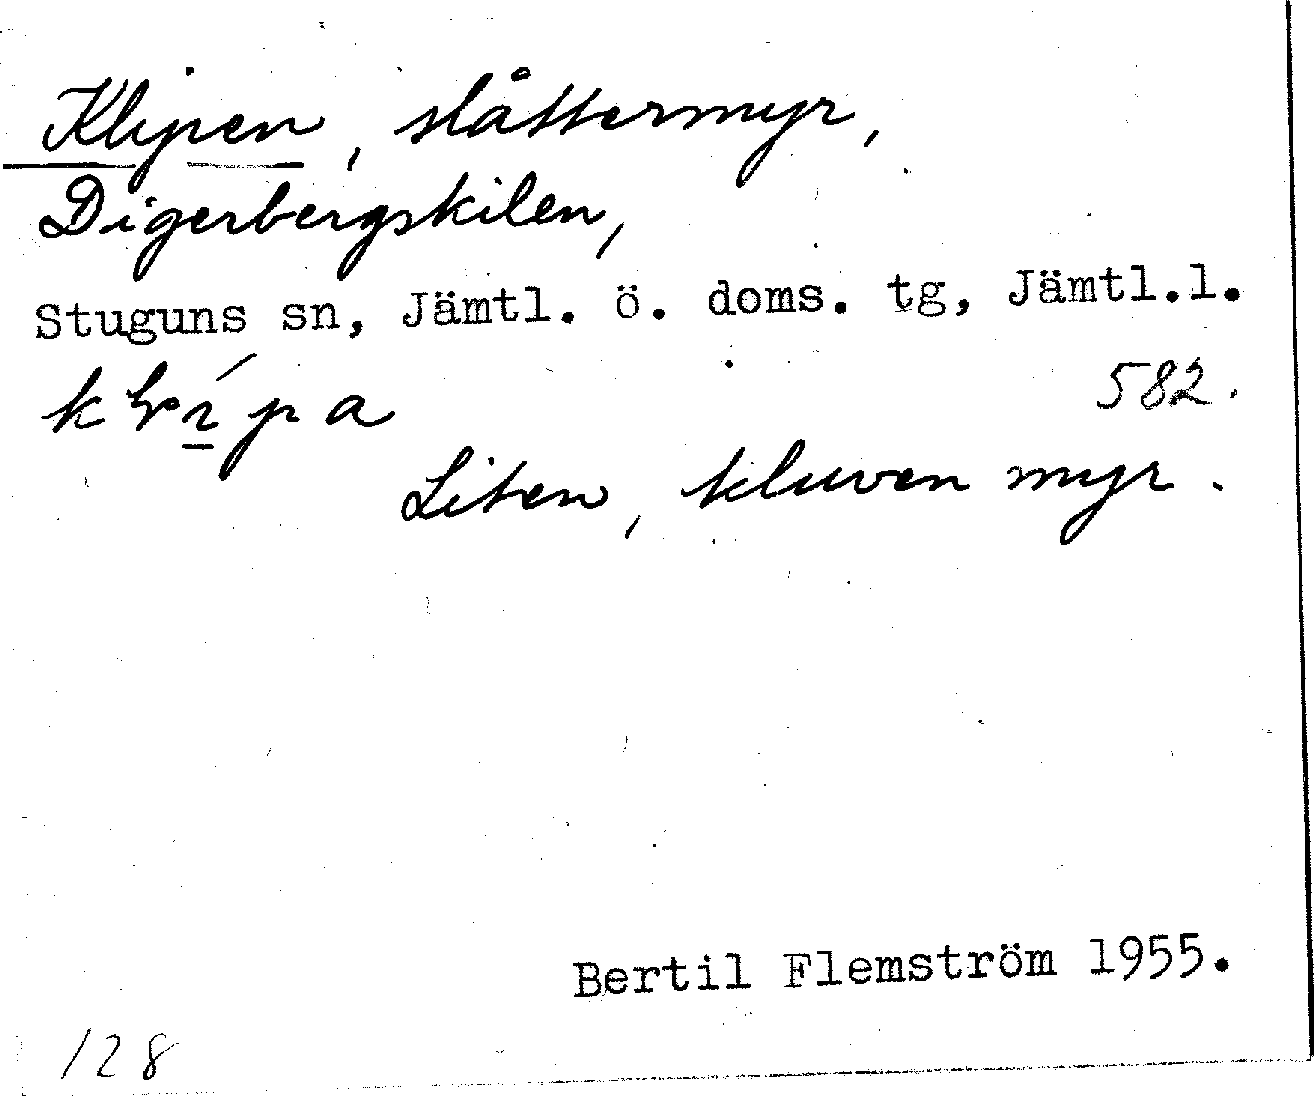 Klipen, slåttermyr,
Digerbergskilen,
Stuguns sn, Jämtl. ö. doms. tg, Jämtl.l.
582.
Liten, kluven myr.
Bertil Flemström 1955.
128